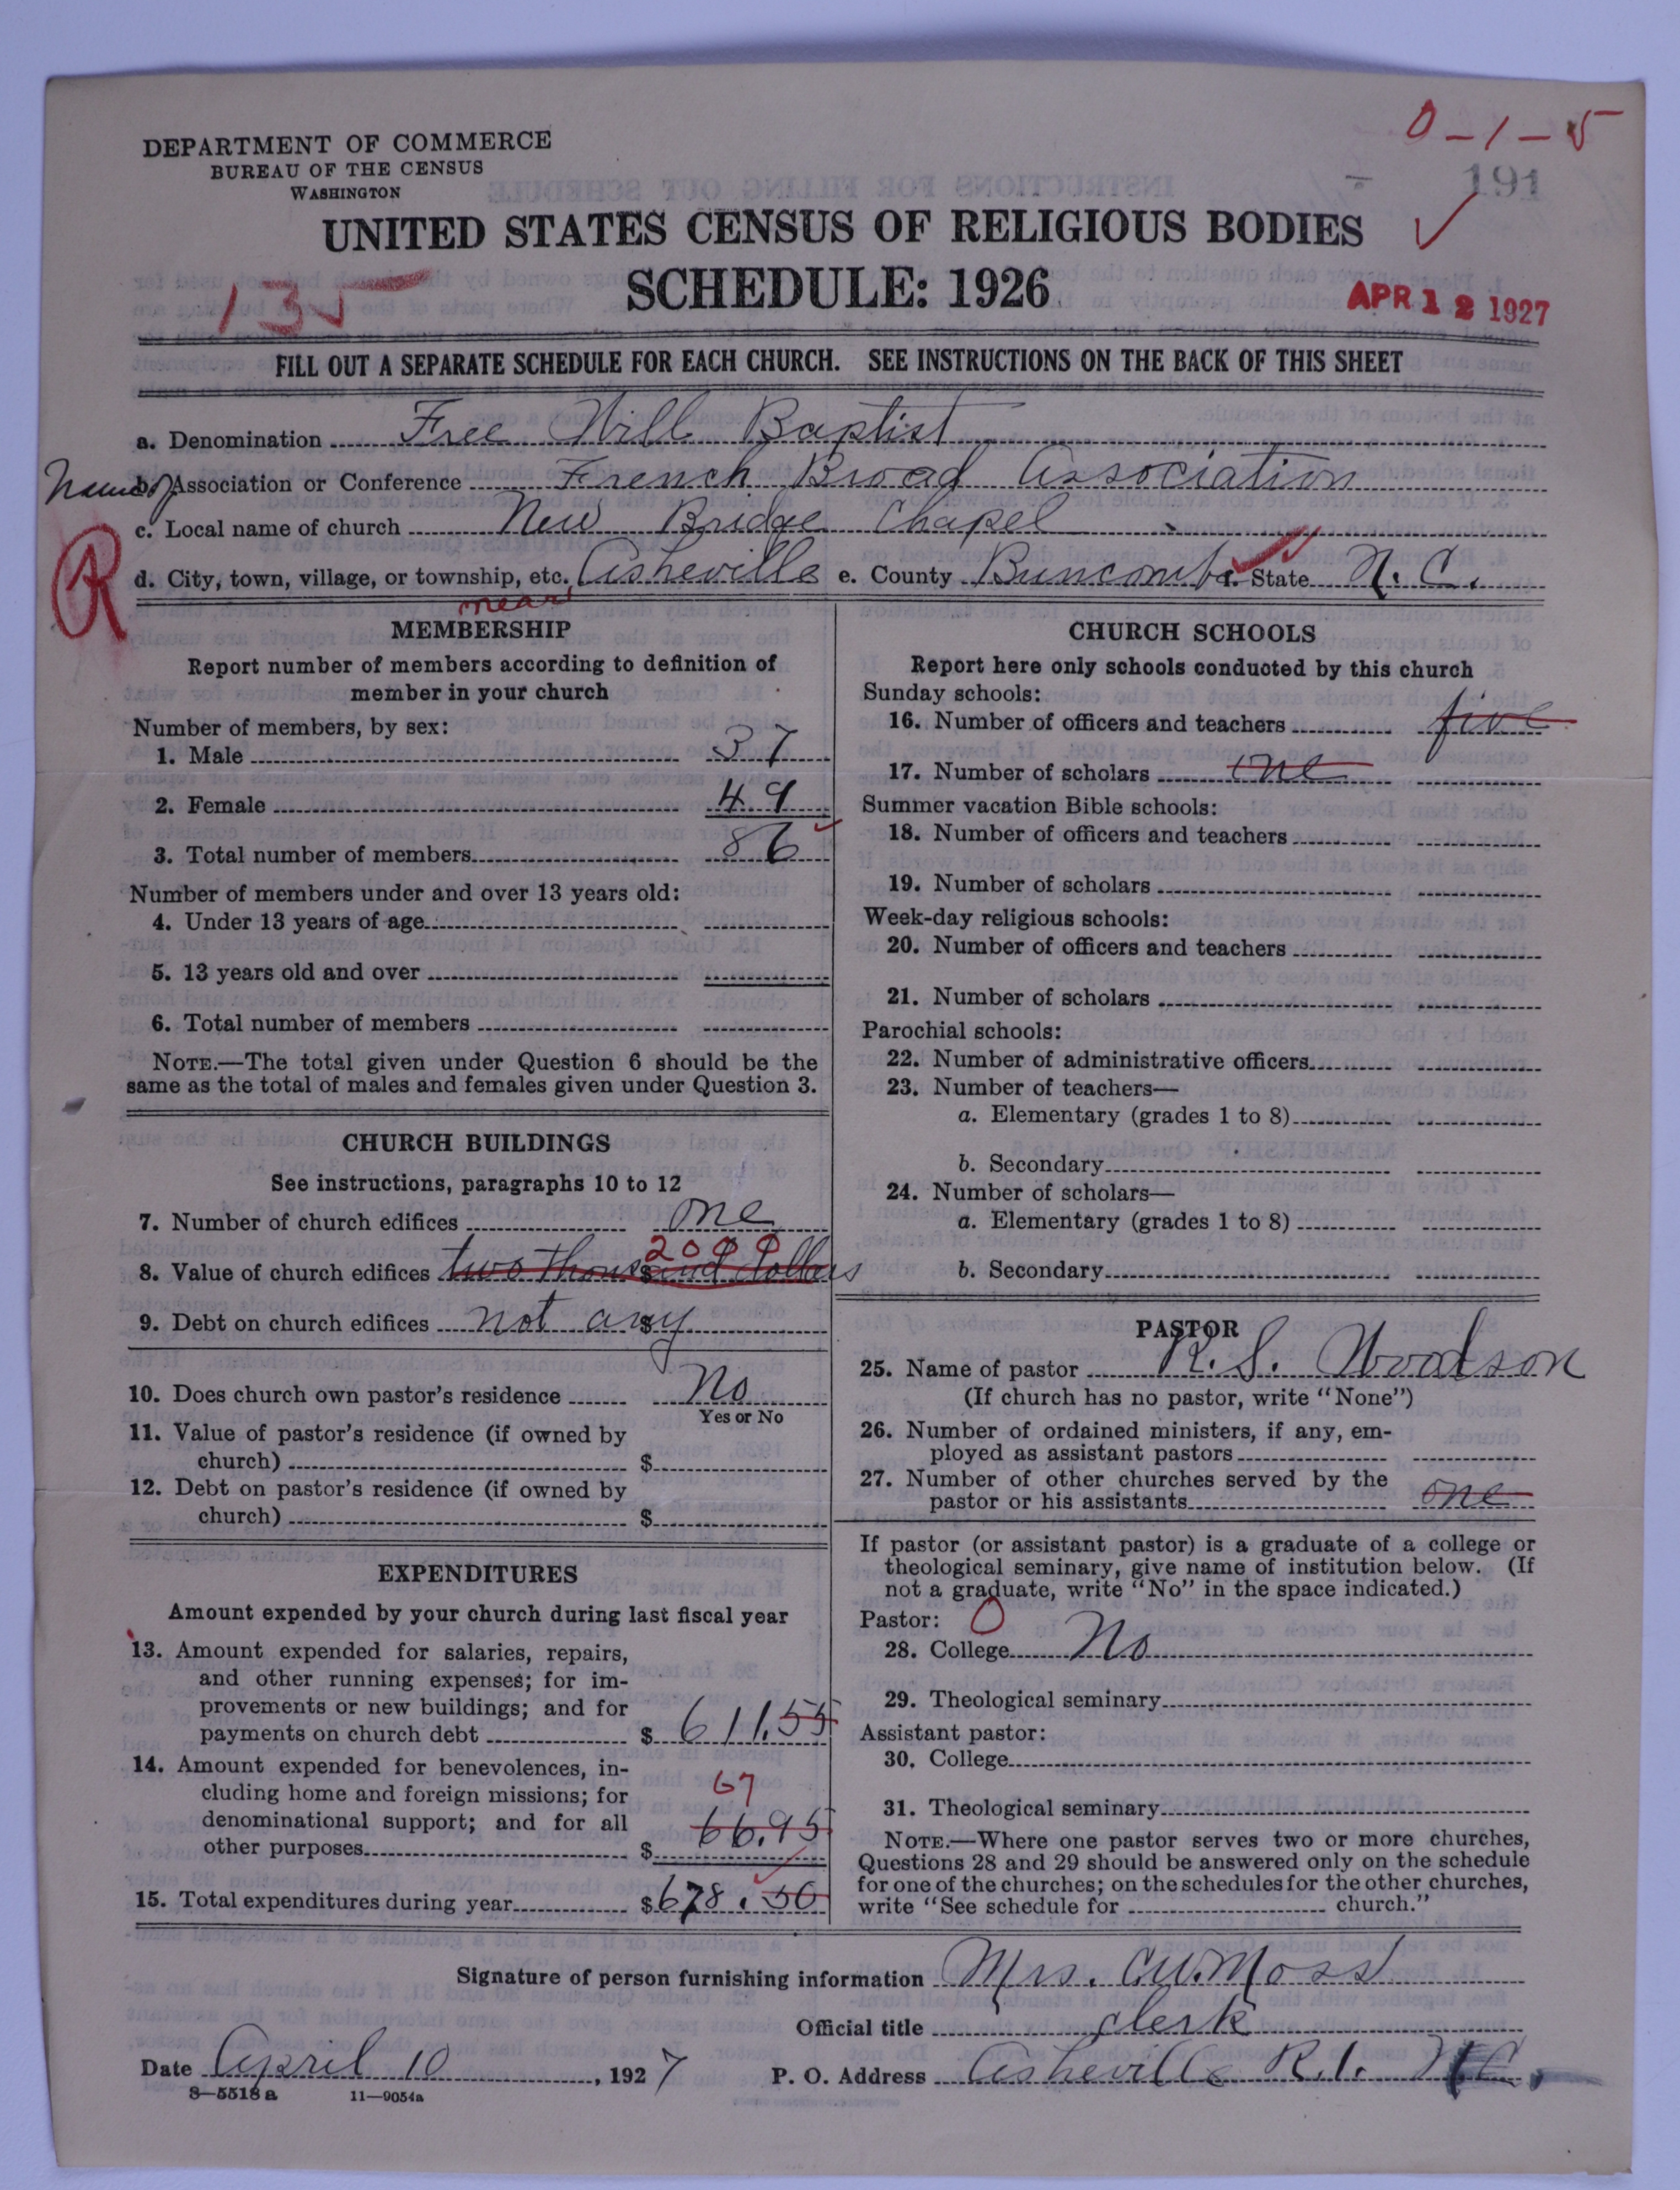 0-1-5
DEPARTMENT OF COMMERCE
BUREAU OF THE CENSUS
WASHINGTON
191
UNITED STATES CENSUS OF RELIGIOUS BODIES
SCHEDULE: 1926
135
APR 12 1927
FILL OUT A SEPARATE SCHEDULE FOR EACH CHURCH. SEE INSTRUCTIONS ON THE BACK OF THIS SHEET
a. Denomination Free Will Baptist
Name of b. Association or Conference French Broad Association
c. Local name of church New Bridge Chapel
R
d. City, town, village, or township, etc. Asheville e. County Buncombe f. State N. C.
near
MEMBERSHIP
Report number of members according to definition of
member in your church
Number of members, by sex:
1. Male 37
2. Female 49
3. Total number of members 86
Number of members under and over 13 years old:
4. Under 13 years of age
5. 13 years old and over
6. Total number of members
NOTE.—The total given under Question 6 should be the
same as the total of males and females given under Question 3.
CHURCH BUILDINGS
See instructions, paragraphs 10 to 12
7. Number of church edifices one
2000
8. Value of church edifices $ two thousand dollars
9. Debt on church edifices $ not any
10. Does church own pastor's residence No
Yes or No
11. Value of pastor's residence (if owned by
church) $
12. Debt on pastor's residence (if owned by
church) $
EXPENDITURES
Amount expended by your church during last fiscal year
13. Amount expended for salaries, repairs,
and other running expenses; for im-
provements or new buildings; and for
payments on church debt $ 611.55
14. Amount expended for benevolences, in-
cluding home and foreign missions; for 67
denominational support; and for all 66.95
other purposes $
15. Total expenditures during year $ 678.50
CHURCH SCHOOLS
Report here only schools conducted by this church
Sunday schools:
16. Number of officers and teachers five
17. Number of scholars one
Summer vacation Bible schools:
18. Number of officers and teachers
19. Number of scholars
Week-day religious schools:
20. Number of officers and teachers
21. Number of scholars
Parochial schools:
22. Number of administrative officers
23. Number of teachers—
a. Elementary (grades 1 to 8)
b. Secondary
24. Number of scholars—
a. Elementary (grades 1 to 8)
b. Secondary
PASTOR
25. Name of pastor R. S. Woodson
(If church has no pastor, write "None")
26. Number of ordained ministers, if any, em-
ployed as assistant pastors
27. Number of other churches served by the
pastor or his assistants one
If pastor (or assistant pastor) is a graduate of a college or
theological seminary, give name of institution below. (If
not a graduate, write "No" in the space indicated.)
Pastor: 0
28. College No
29. Theological seminary
Assistant pastor:
30. College
31. Theological seminary
NOTE.—Where one pastor serves two or more churches,
Questions 28 and 29 should be answered only on the schedule
for one of the churches; on the schedules for the other churches,
write "See schedule for church."
Signature of person furnishing information Mrs. C.W. Moss
Official title clerk
Date April 10, 1927 P. O. Address Asheville R.1. N.C.
8—5518 a 11—9054a